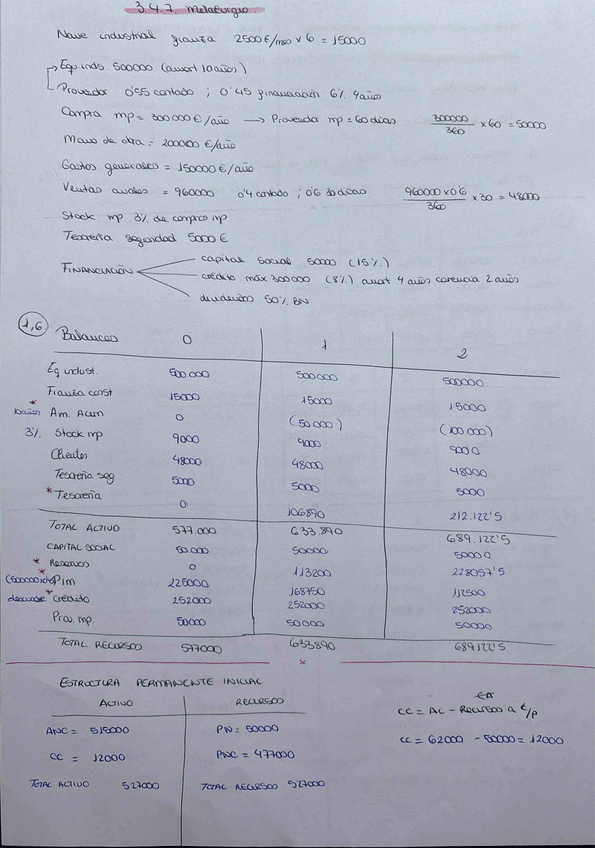 3.4.7 Metalurgia
Nave industrial fianza 2500€/mes x 6 = 15000
Eq inds. 500000 (amort 10 años)
Proveedor 0'55 contado ; 0'45 financiación 6% 4 años
Compra mp = 300000 €/año → Proveedor mp = 60 días 300000/360 x 60 = 50000
Mano de obra = 200000 €/año
Gastos generales = 150000 €/año
Ventas anuales = 960000 0'4 contado ; 0'6 30 días 960000 x 0'6/360 x 30 = 48000
Stock mp 3% de compras mp
Tesorería seguridad 5000 €
FINANCIACIÓN
capital social 50000 (15%)
crédito máx 300000 (8%) amort 4 años carencia 2 años
dividendos 50% BN
1,6 Balances 0 1 2
Eq indust. 500000 500000 500000
Fianza const 15000 15000 15000
* 10 años Am. Acum 0 (50000) (100000)
3% Stock mp 9000 9000 9000
Clientes 48000 48000 48000
Tesorería seg 5000 5000 5000
* Tesorería 0 106890 212.122'5
TOTAL ACTIVO 577.000 633.890 689.122'5
CAPITAL SOCIAL 50.000 50000 50000
* Reservas 0 113200 228057'5
* Pim 225000 168750 112500
* Crédito 252000 252000 252000
Prov. mp. 50000 50000 50000
TOTAL RECURSOS 577000 633890 689.122'5
*
ESTRUCTURA PERMANENTE INICIAL
ACTIVO RECURSOS
ANC = 515000 PN = 50000
CC = 12000 PNC = 477000
TOTAL ACTIVO 527000 TOTAL RECURSOS 527000
CC = AC - Recursos a c/p
CC = 62000 - 50000 = 12000